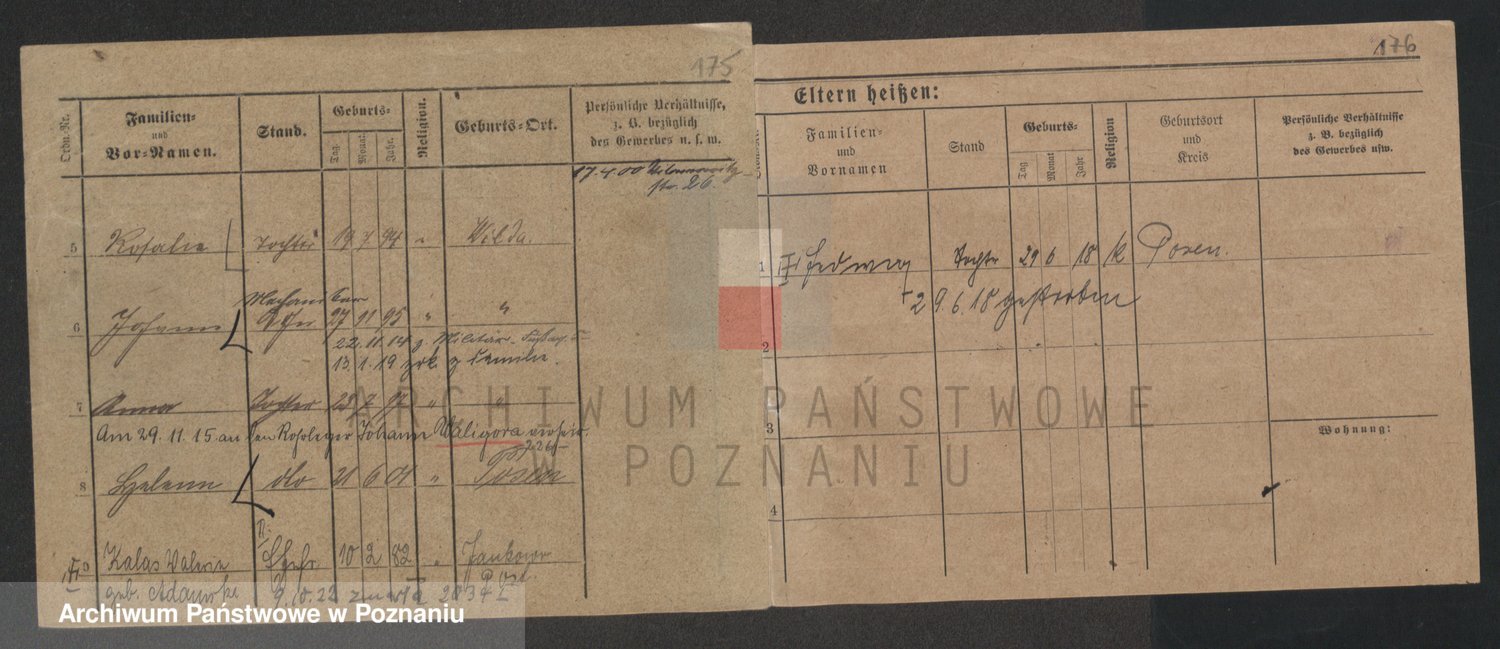 175
Ordn.-Nr.
Familien-
und
Vor-Namen.
Stand.
Geburts-
Tag.
Monat.
Jahr.
Religion.
Geburts-Ort.
Persönliche Verhältnisse,
z. B. bezüglich
des Gewerbes u. s. w.
17.4.00
str. 26.
5 Rosalie Tochter 19 7 94 " Wilda.
Mechaniker
6 Johann Sohn 27 11 95 " "
22.11.14 z. Militär
13.1.19 zrk z Familie.
7 Anna Tochter 23 7 97 " "
Am 29.11.15 an den Johann Waligora
8 Helene dto 21 6 01 " Posen
II.
9 Kalas Valerie Ehefr. 10 2 82 " Jankowo
geb. 22 zmarła
176
Eltern heißen:
Familien-
und
Vornamen
Stand
Geburts-
Tag
Monat
Jahr
Religion
Geburtsort
und
Kreis
Persönliche Verhältnisse
z. B. bezüglich
des Gewerbes usw.
1 Hedwig Tochtr 29 6 18 k Posen.
+ 29.6.18 gestorben
2
3
Wohnung:
4
ARCHIWUM PAŃSTWOWE
W POZNANIU
Archiwum Państwowe w Poznaniu